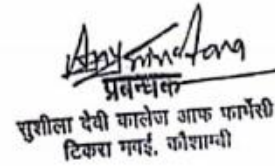 प्रबन्धक
सुशीला देवी कालेज आफ फार्मेसी
टिकरा मवई, कौशाम्बी